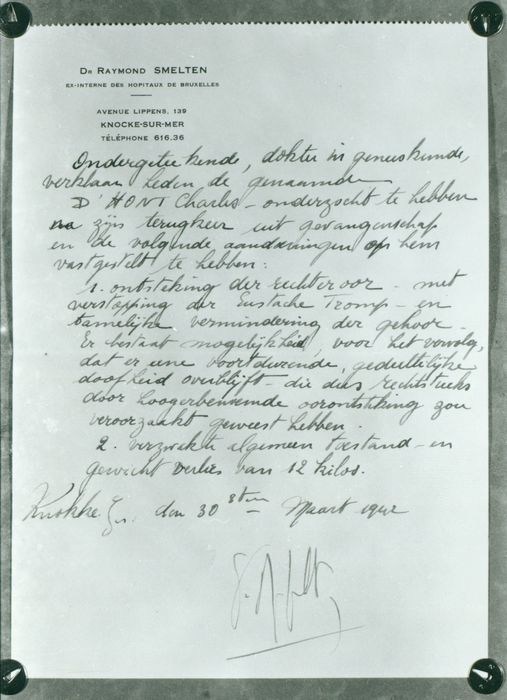 DR RAYMOND SMELTEN
EX-INTERNE DES HOPITAUX DE BRUXELLES
AVENUE LIPPENS, 139
KNOCKE-SUR-MER
TÉLÉPHONE 616.36
Ondergeteekende, dokter in geneeskunde,
verklaar heden de genaamde
D'HONT Charles - onderzocht te hebben
na zijn terugkeer uit gevangenschap
en de volgende aandoeningen op hem
vastgestelt te hebben:
1. ontsteking der rechteroor - met
verstopping der Eustache Tromp - en
tamelijke vermindering der gehoor -
Er bestaat mogelijkheid, voor het vervolg,
dat er eene voortdurende, gedeeltelijke
doofheid overblijft - die dus rechtstreeks
door hoogerbenoemde oorontsteking zou
veroorzaakt geweest hebben.
2. verzwakte algemeen toestand - en
gewicht verlies van 12 kilos.
Knokke den 30 sten Maart 1942